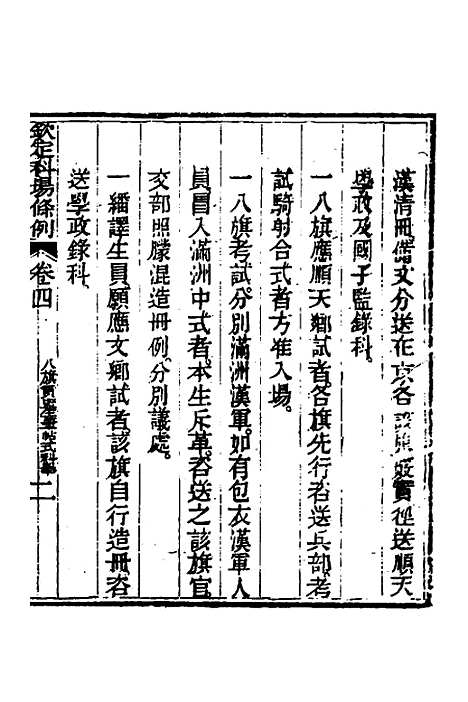 漢清冊備文分送在京各該旗核實徑送順天
學政及國子監錄科。
一八旗應順天鄉試者。各旗先行咨送兵部。考
試騎射合式者。方准入場。
一八旗考試。分別滿洲漢軍。如有包衣漢軍人
員。冒入滿洲中式者。本生斥革。咨送之該旗官。
交部照朦混造冊例。分別議處。
一繙譯生員。願應文鄉試者。該旗自行造冊。咨
送學政錄科。
欽定科場條例 卷四 八旗 二